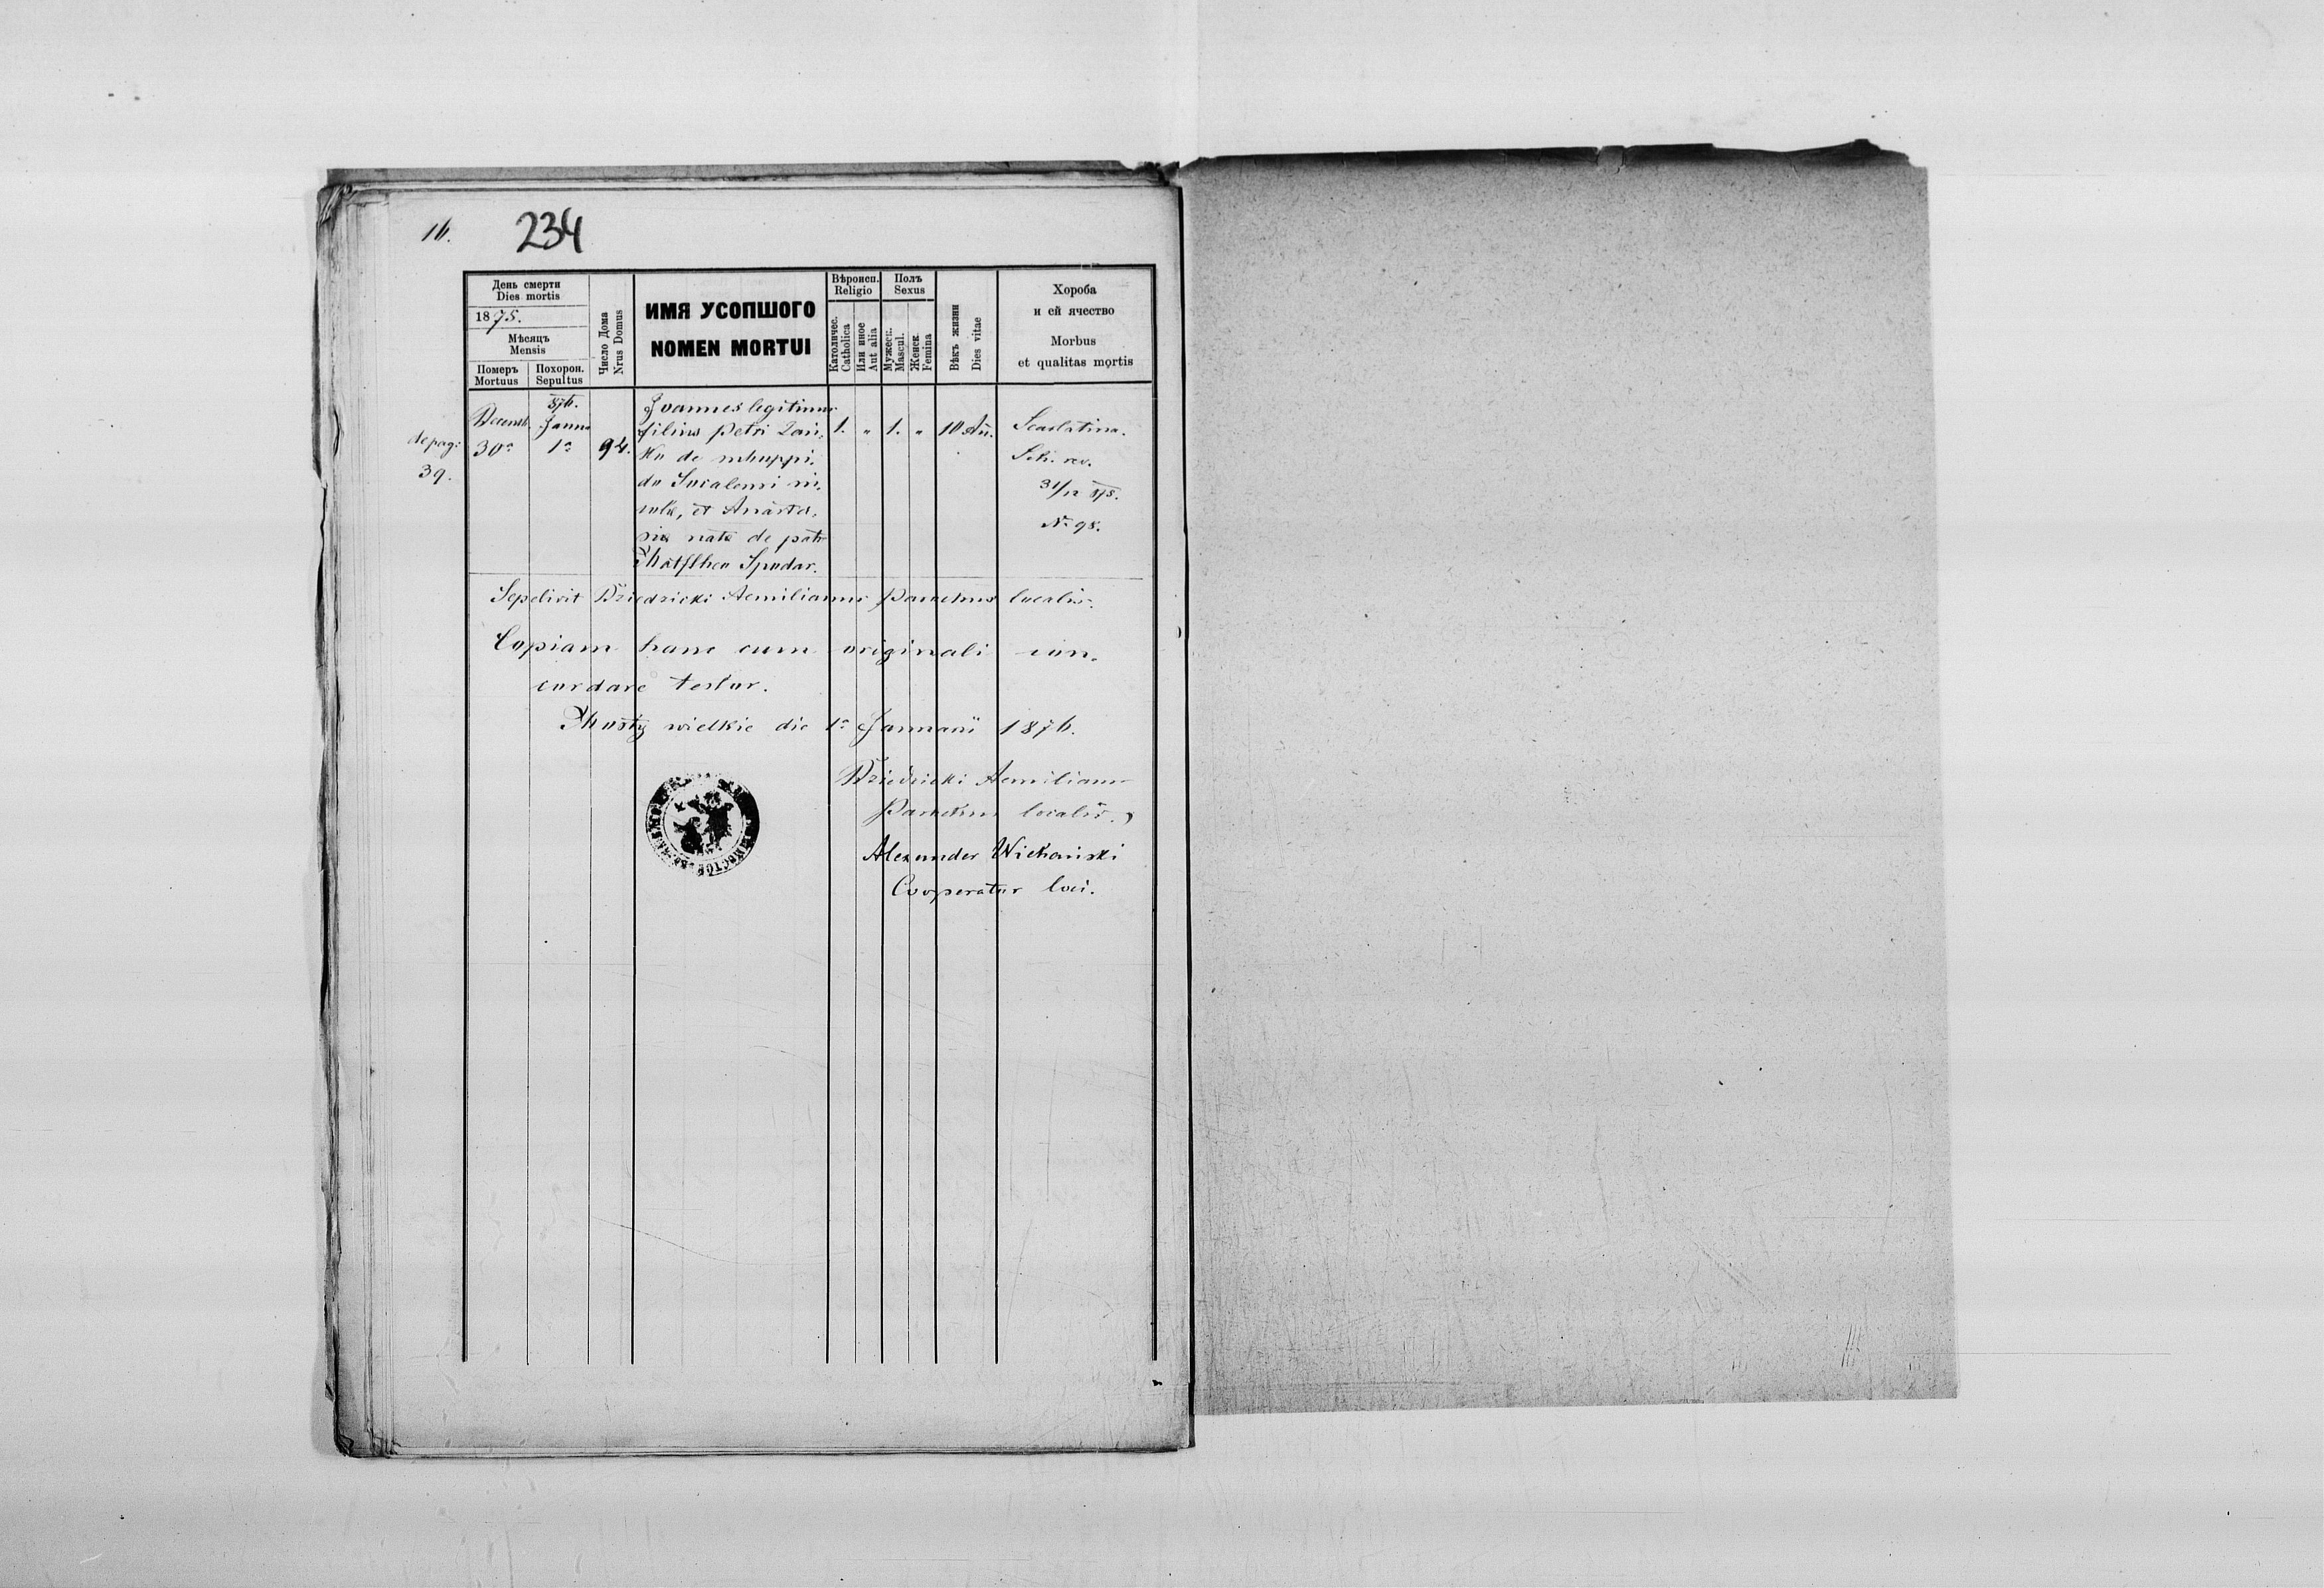 16.
234
День смерти
Dies mortis
1875.
Мѣсяцъ
Mensis
Померъ
Mortuus
Похорон.
Sepultus
Число Дома
Nrus Domus
ИМЯ УСОПШОГО
NOMEN MORTUI
Вѣроисп.
Religio
Католичес.
Catholica
Или иное
Aut alia
Полъ
Sexus
Мужеск.
Mascul.
Женск.
Femina
Вѣкъ жизни
Dies vitae
Хороба
и ей ячество
Morbus
et qualitas mortis
de pag:
39.
Decemb.
30a
876.
Janua
1a
94.
Joannes legitimus
filius Petri
de
do
et Anasta,
siae natae de patr
Spodar.
1. „ 1. „ 10 An.
Scarlatina.
Sch. rev.
31/12 875.
N. 98.
Sepelivit Dziedzicki Aemilianus Parochus localis.
Copiam hanc cum originali con,
cordare testor.
wielkie die 1a Januarii 1876.
Dziedzicki Aemilianus
Parochus localis.
Alexander
Cooperator loci.